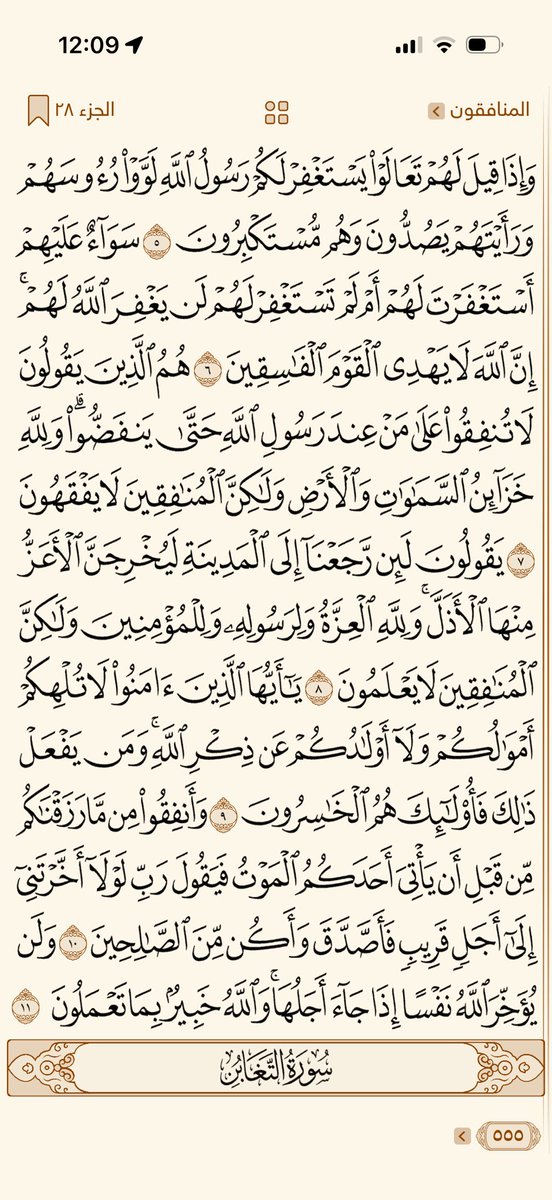 12:09
المنافقون
الجزء ٢٨
وَإِذَا قِيلَ لَهُمۡ تَعَالَوۡاْ يَسۡتَغۡفِرۡ لَكُمۡ رَسُولُ ٱللَّهِ لَوَّوۡاْ رُءُوسَهُمۡ
وَرَأَيۡتَهُمۡ يَصُدُّونَ وَهُم مُّسۡتَكۡبِرُونَ ٥ سَوَآءٌ عَلَيۡهِمۡ
أَسۡتَغۡفَرۡتَ لَهُمۡ أَمۡ لَمۡ تَسۡتَغۡفِرۡ لَهُمۡ لَن يَغۡفِرَ ٱللَّهُ لَهُمۡۚ
إِنَّ ٱللَّهَ لَا يَهۡدِي ٱلۡقَوۡمَ ٱلۡفَٰسِقِينَ ٦ هُمُ ٱلَّذِينَ يَقُولُونَ
لَا تُنفِقُواْ عَلَىٰ مَنۡ عِندَ رَسُولِ ٱللَّهِ حَتَّىٰ يَنفَضُّواْۗ وَلِلَّهِ
خَزَآئِنُ ٱلسَّمَٰوَٰتِ وَٱلۡأَرۡضِ وَلَٰكِنَّ ٱلۡمُنَٰفِقِينَ لَا يَفۡقَهُونَ
٧ يَقُولُونَ لَئِن رَّجَعۡنَآ إِلَى ٱلۡمَدِينَةِ لَيُخۡرِجَنَّ ٱلۡأَعَزُّ
مِنۡهَا ٱلۡأَذَلَّۚ وَلِلَّهِ ٱلۡعِزَّةُ وَلِرَسُولِهِۦ وَلِلۡمُؤۡمِنِينَ وَلَٰكِنَّ
ٱلۡمُنَٰفِقِينَ لَا يَعۡلَمُونَ ٨ يَٰٓأَيُّهَا ٱلَّذِينَ ءَامَنُواْ لَا تُلۡهِكُمۡ
أَمۡوَٰلُكُمۡ وَلَآ أَوۡلَٰدُكُمۡ عَن ذِكۡرِ ٱللَّهِۚ وَمَن يَفۡعَلۡ
ذَٰلِكَ فَأُوْلَٰٓئِكَ هُمُ ٱلۡخَٰسِرُونَ ٩ وَأَنفِقُواْ مِن مَّا رَزَقۡنَٰكُم
مِّن قَبۡلِ أَن يَأۡتِيَ أَحَدَكُمُ ٱلۡمَوۡتُ فَيَقُولَ رَبِّ لَوۡلَآ أَخَّرۡتَنِيٓ
إِلَىٰٓ أَجَلٖ قَرِيبٖ فَأَصَّدَّقَ وَأَكُن مِّنَ ٱلصَّٰلِحِينَ ١٠ وَلَن
يُؤَخِّرَ ٱللَّهُ نَفۡسًا إِذَا جَآءَ أَجَلُهَاۚ وَٱللَّهُ خَبِيرُۢ بِمَا تَعۡمَلُونَ ١١
سُورَةُ التَّغَابُنِ
٥٥٥